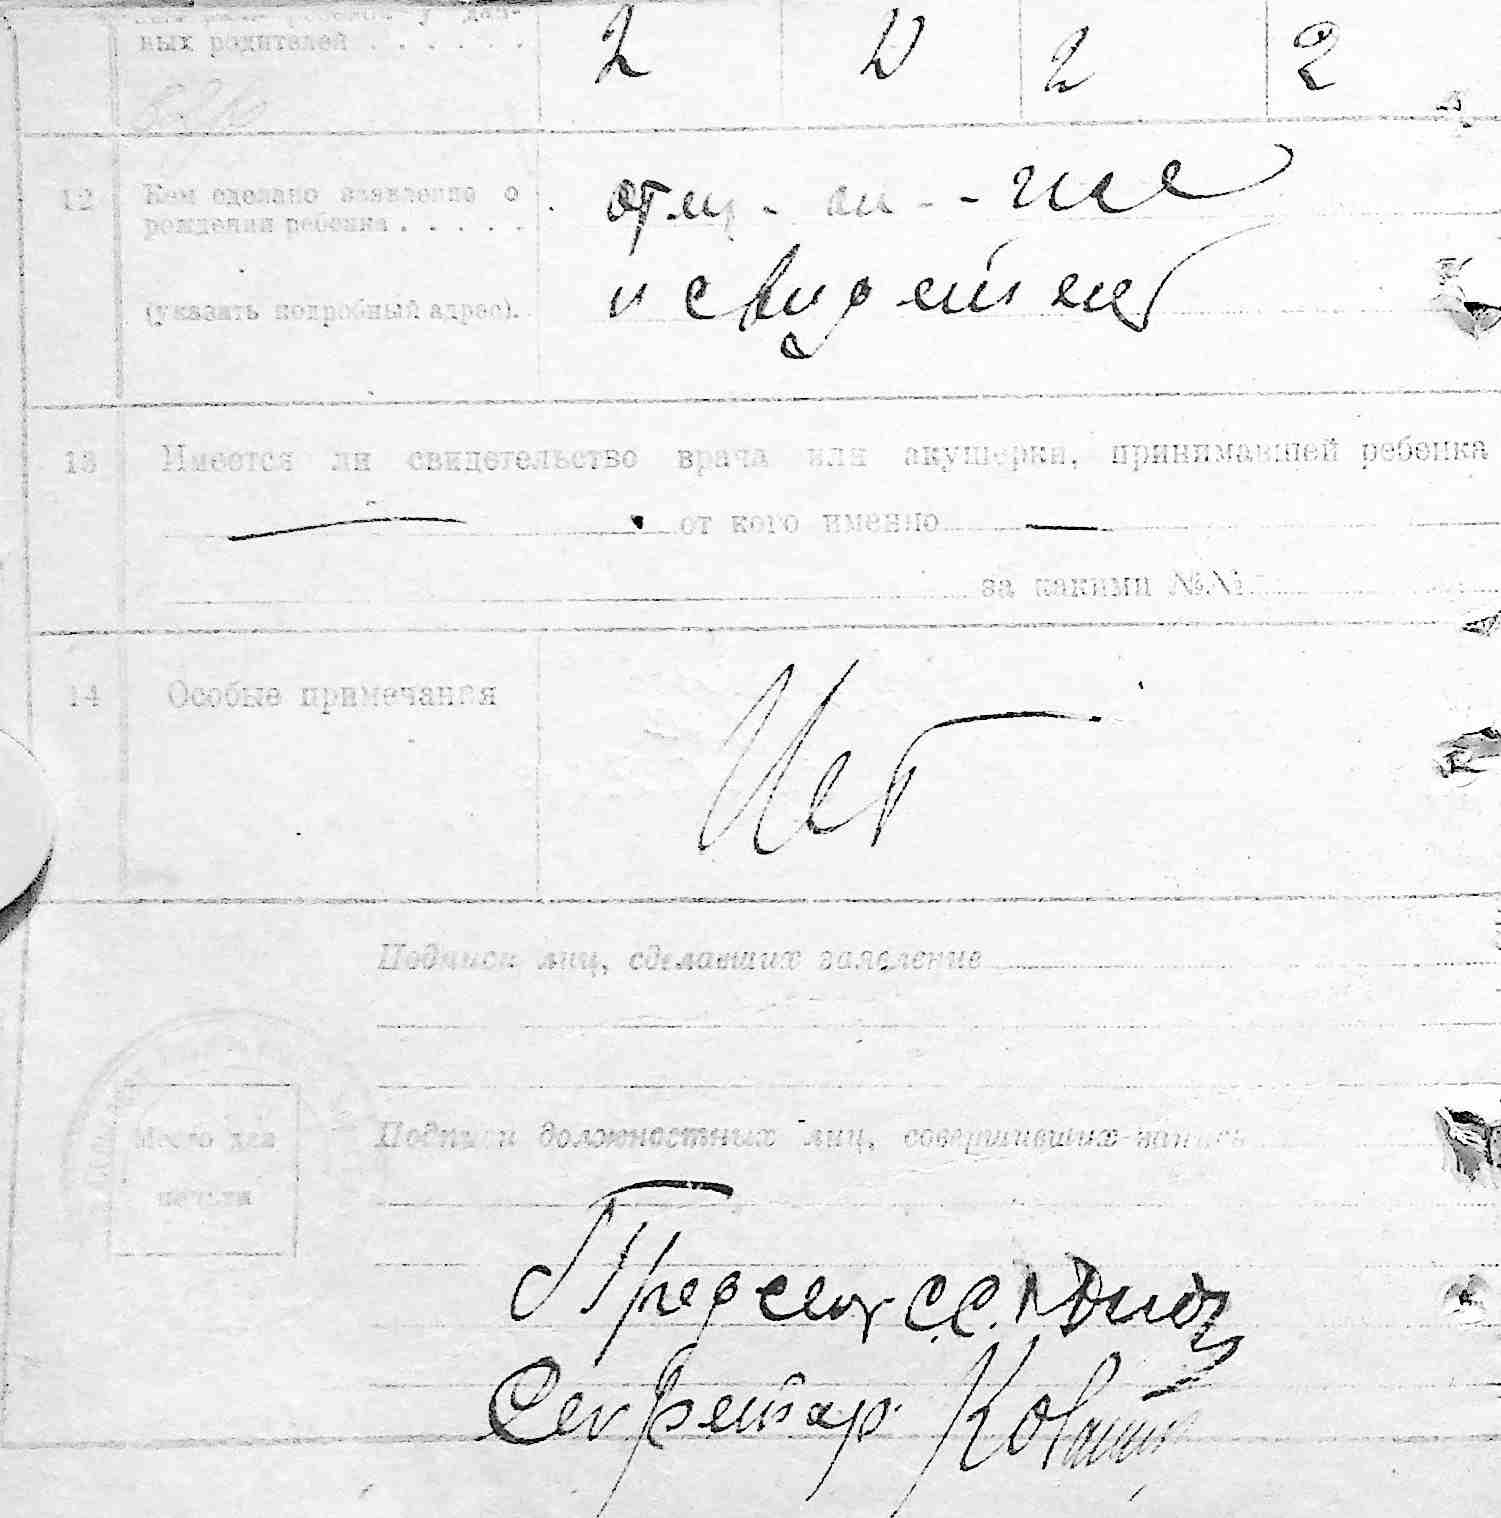 ных родителей . . . . . .
2 2 2 2
12 Кем сделано заявление о
рождении ребенка . . . . .
(указать подробный адрес).
и свидетел
13 Имеется ли свидетельство врача или акушерки, принимавшей ребенка
— от кого именно —
за какими №№
14 Особые примечания
Нет
Подписи лиц, сделавших заявление
Место для
печати
Подписи должностных лиц, совершивших запись
Предсель с.с.
Секретар